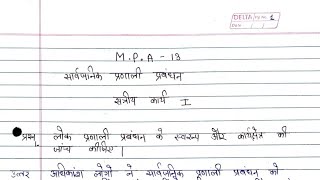 DELTA Pg No. 1
M.P.A - 13
सार्वजनिक प्रणाली प्रबंधन
सत्रीय कार्य I
प्रश्न. लोक प्रणाली प्रबंधन के स्वरूप और कार्यक्षेत्र की
जांच कीजिए।
उत्तर अधिकांश लोगों ने सार्वजनिक प्रणाली प्रबंधन को